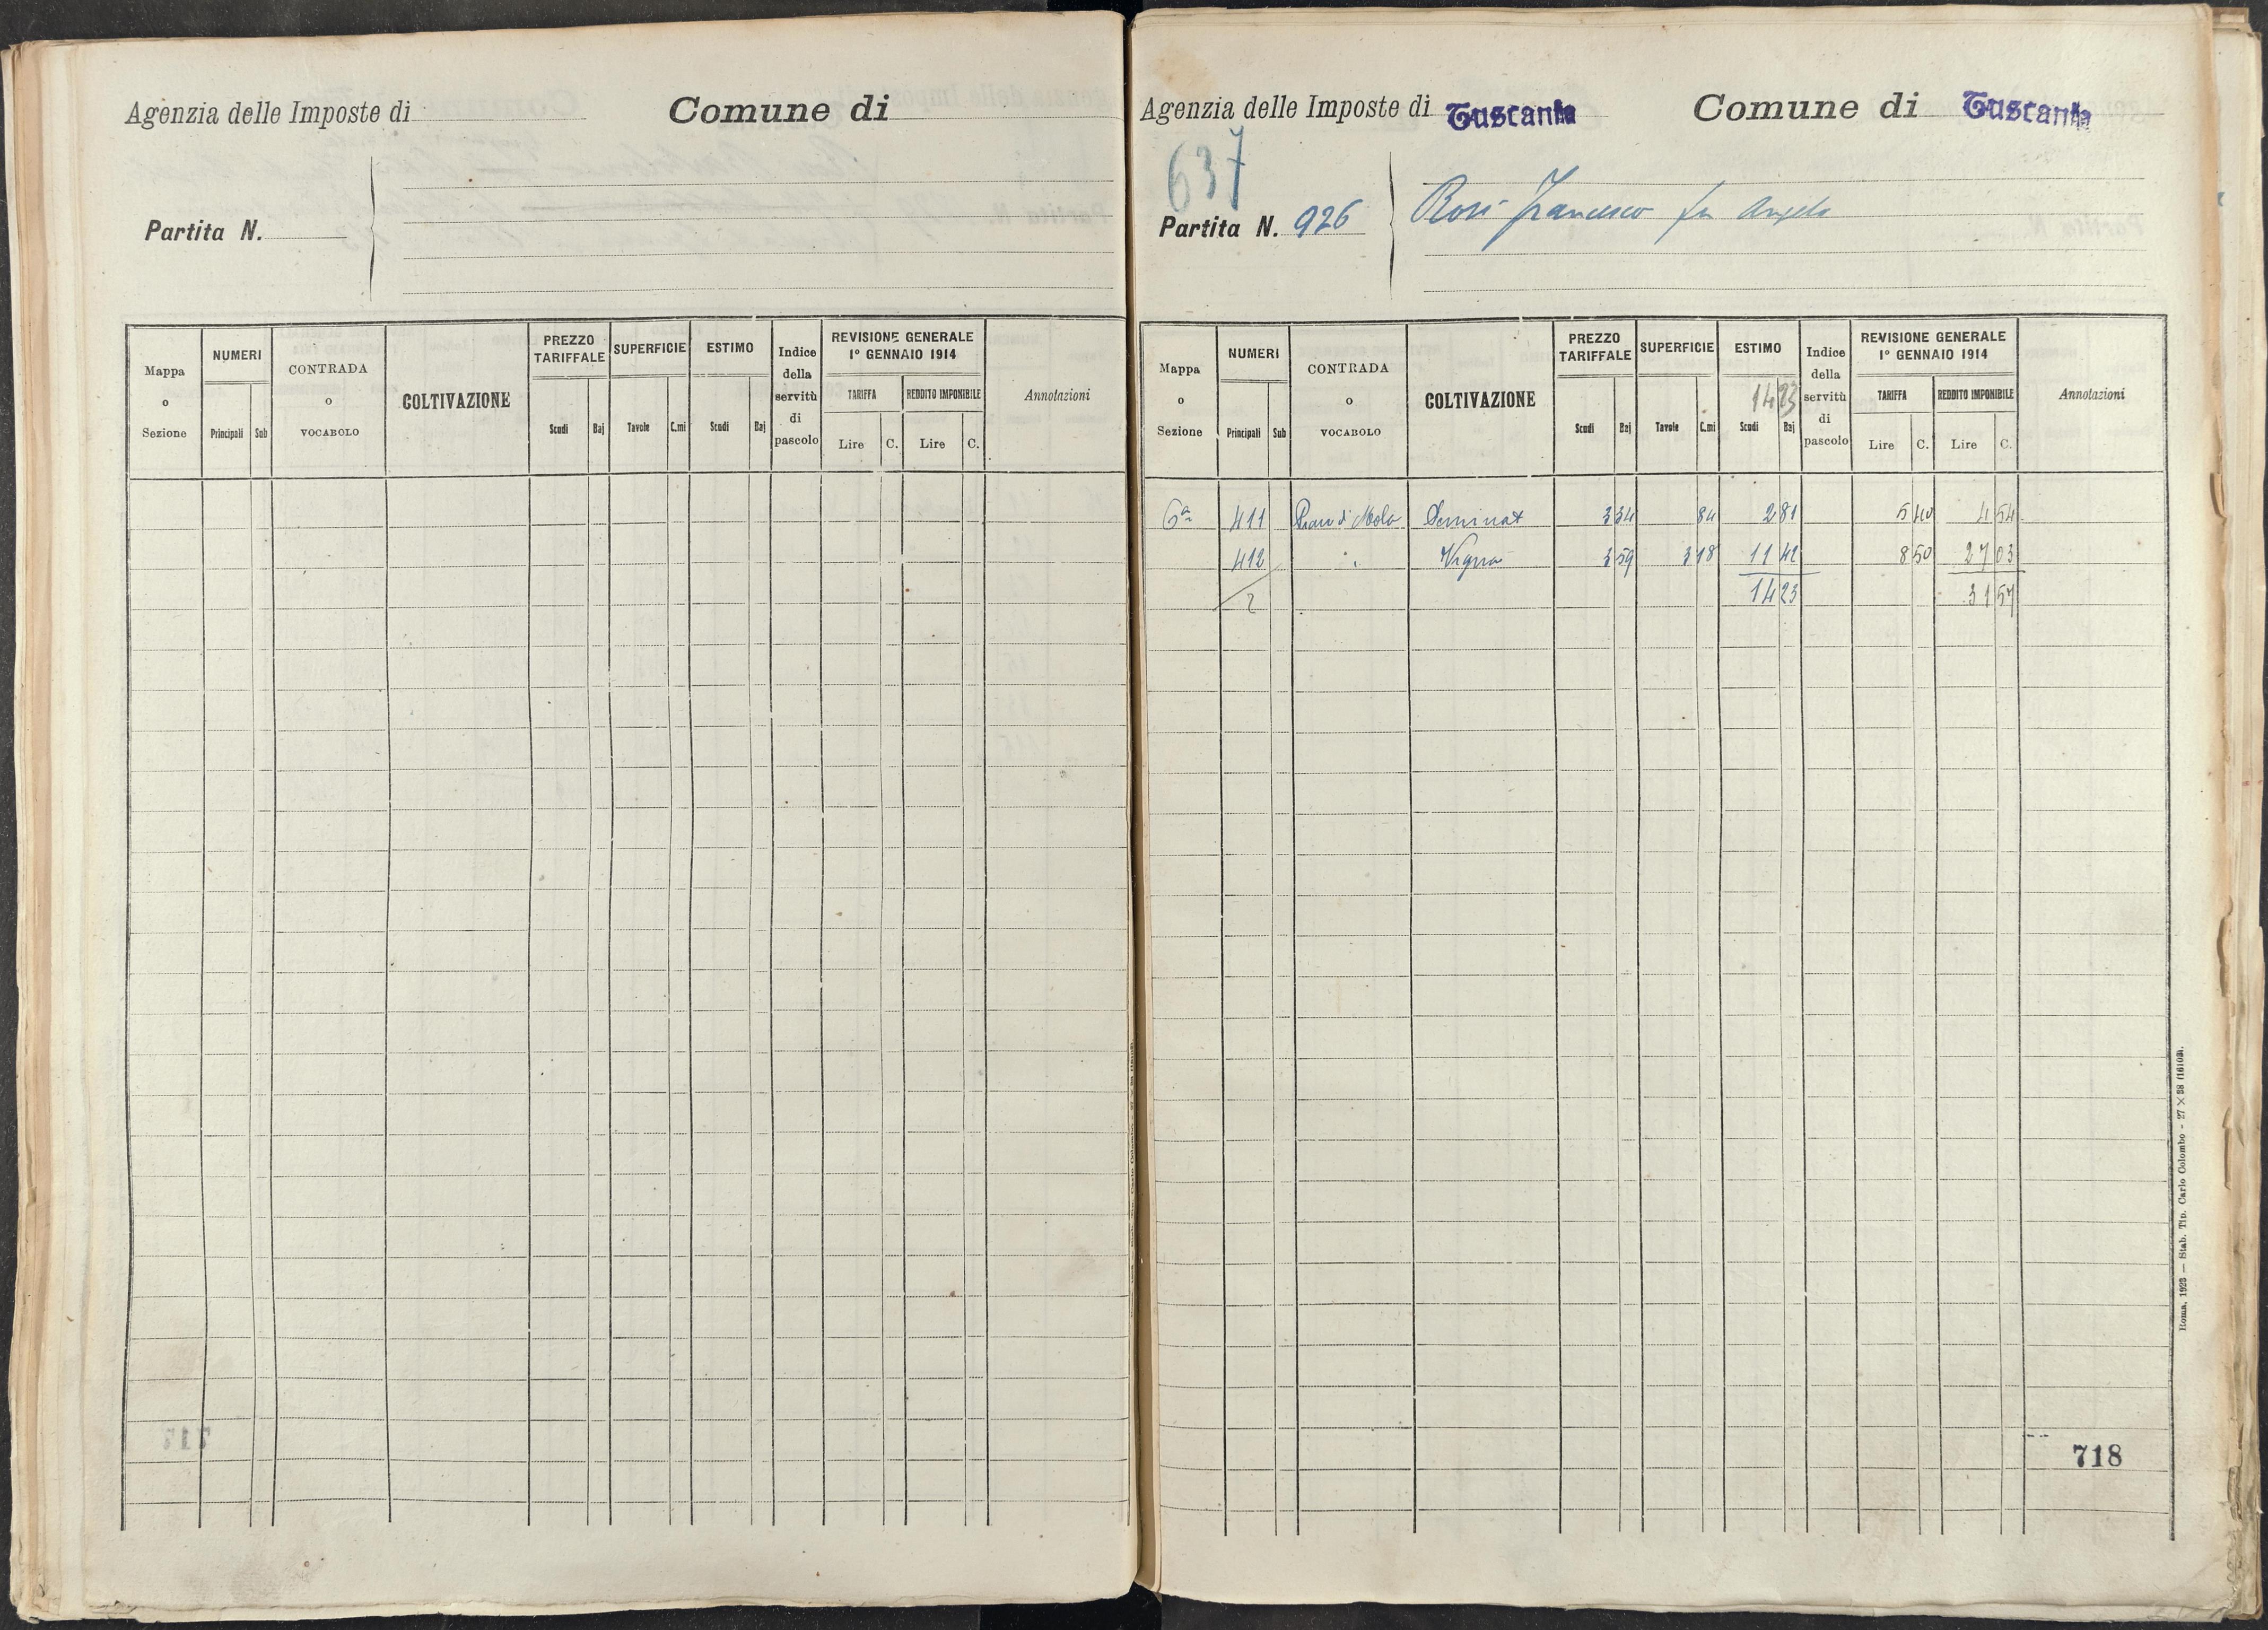 Agenzia delle Imposte di
Comune di
Partita N.
Mappa o Sezione
NUMERI
Principali Sub
CONTRADA o VOCABOLO
COLTIVAZIONE
PREZZO TARIFFALE
Scudi Baj
SUPERFICIE
Tavole C.mi
ESTIMO
Scudi Baj
Indice della servitù di pascolo
REVISIONE GENERALE
1° GENNAIO 1914
TARIFFA
Lire C.
REDDITO IMPONIBILE
Lire C.
Annotazioni
717
Agenzia delle Imposte di Tuscania
Comune di Tuscania
637
Partita N. 926
Rosi Francesco fu Angelo
Mappa o Sezione
NUMERI
Principali Sub
CONTRADA o VOCABOLO
COLTIVAZIONE
PREZZO TARIFFALE
Scudi Baj
SUPERFICIE
Tavole C.mi
ESTIMO
14 23
Scudi Baj
Indice della servitù di pascolo
REVISIONE GENERALE
1° GENNAIO 1914
TARIFFA
Lire C.
REDDITO IMPONIBILE
Lire C.
Annotazioni
6a 411 Pian di Mola Seminat 3 34 84 2 81 5 40 4 54
412 " Vigna 3 59 3 18 11 42 8 50 27 03
2 14 23 31 57
718
Roma, 1923 — Stab. Tip. Carlo Colombo - 27 × 38